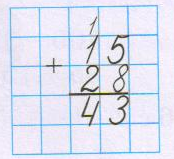 1
15
+
28
43